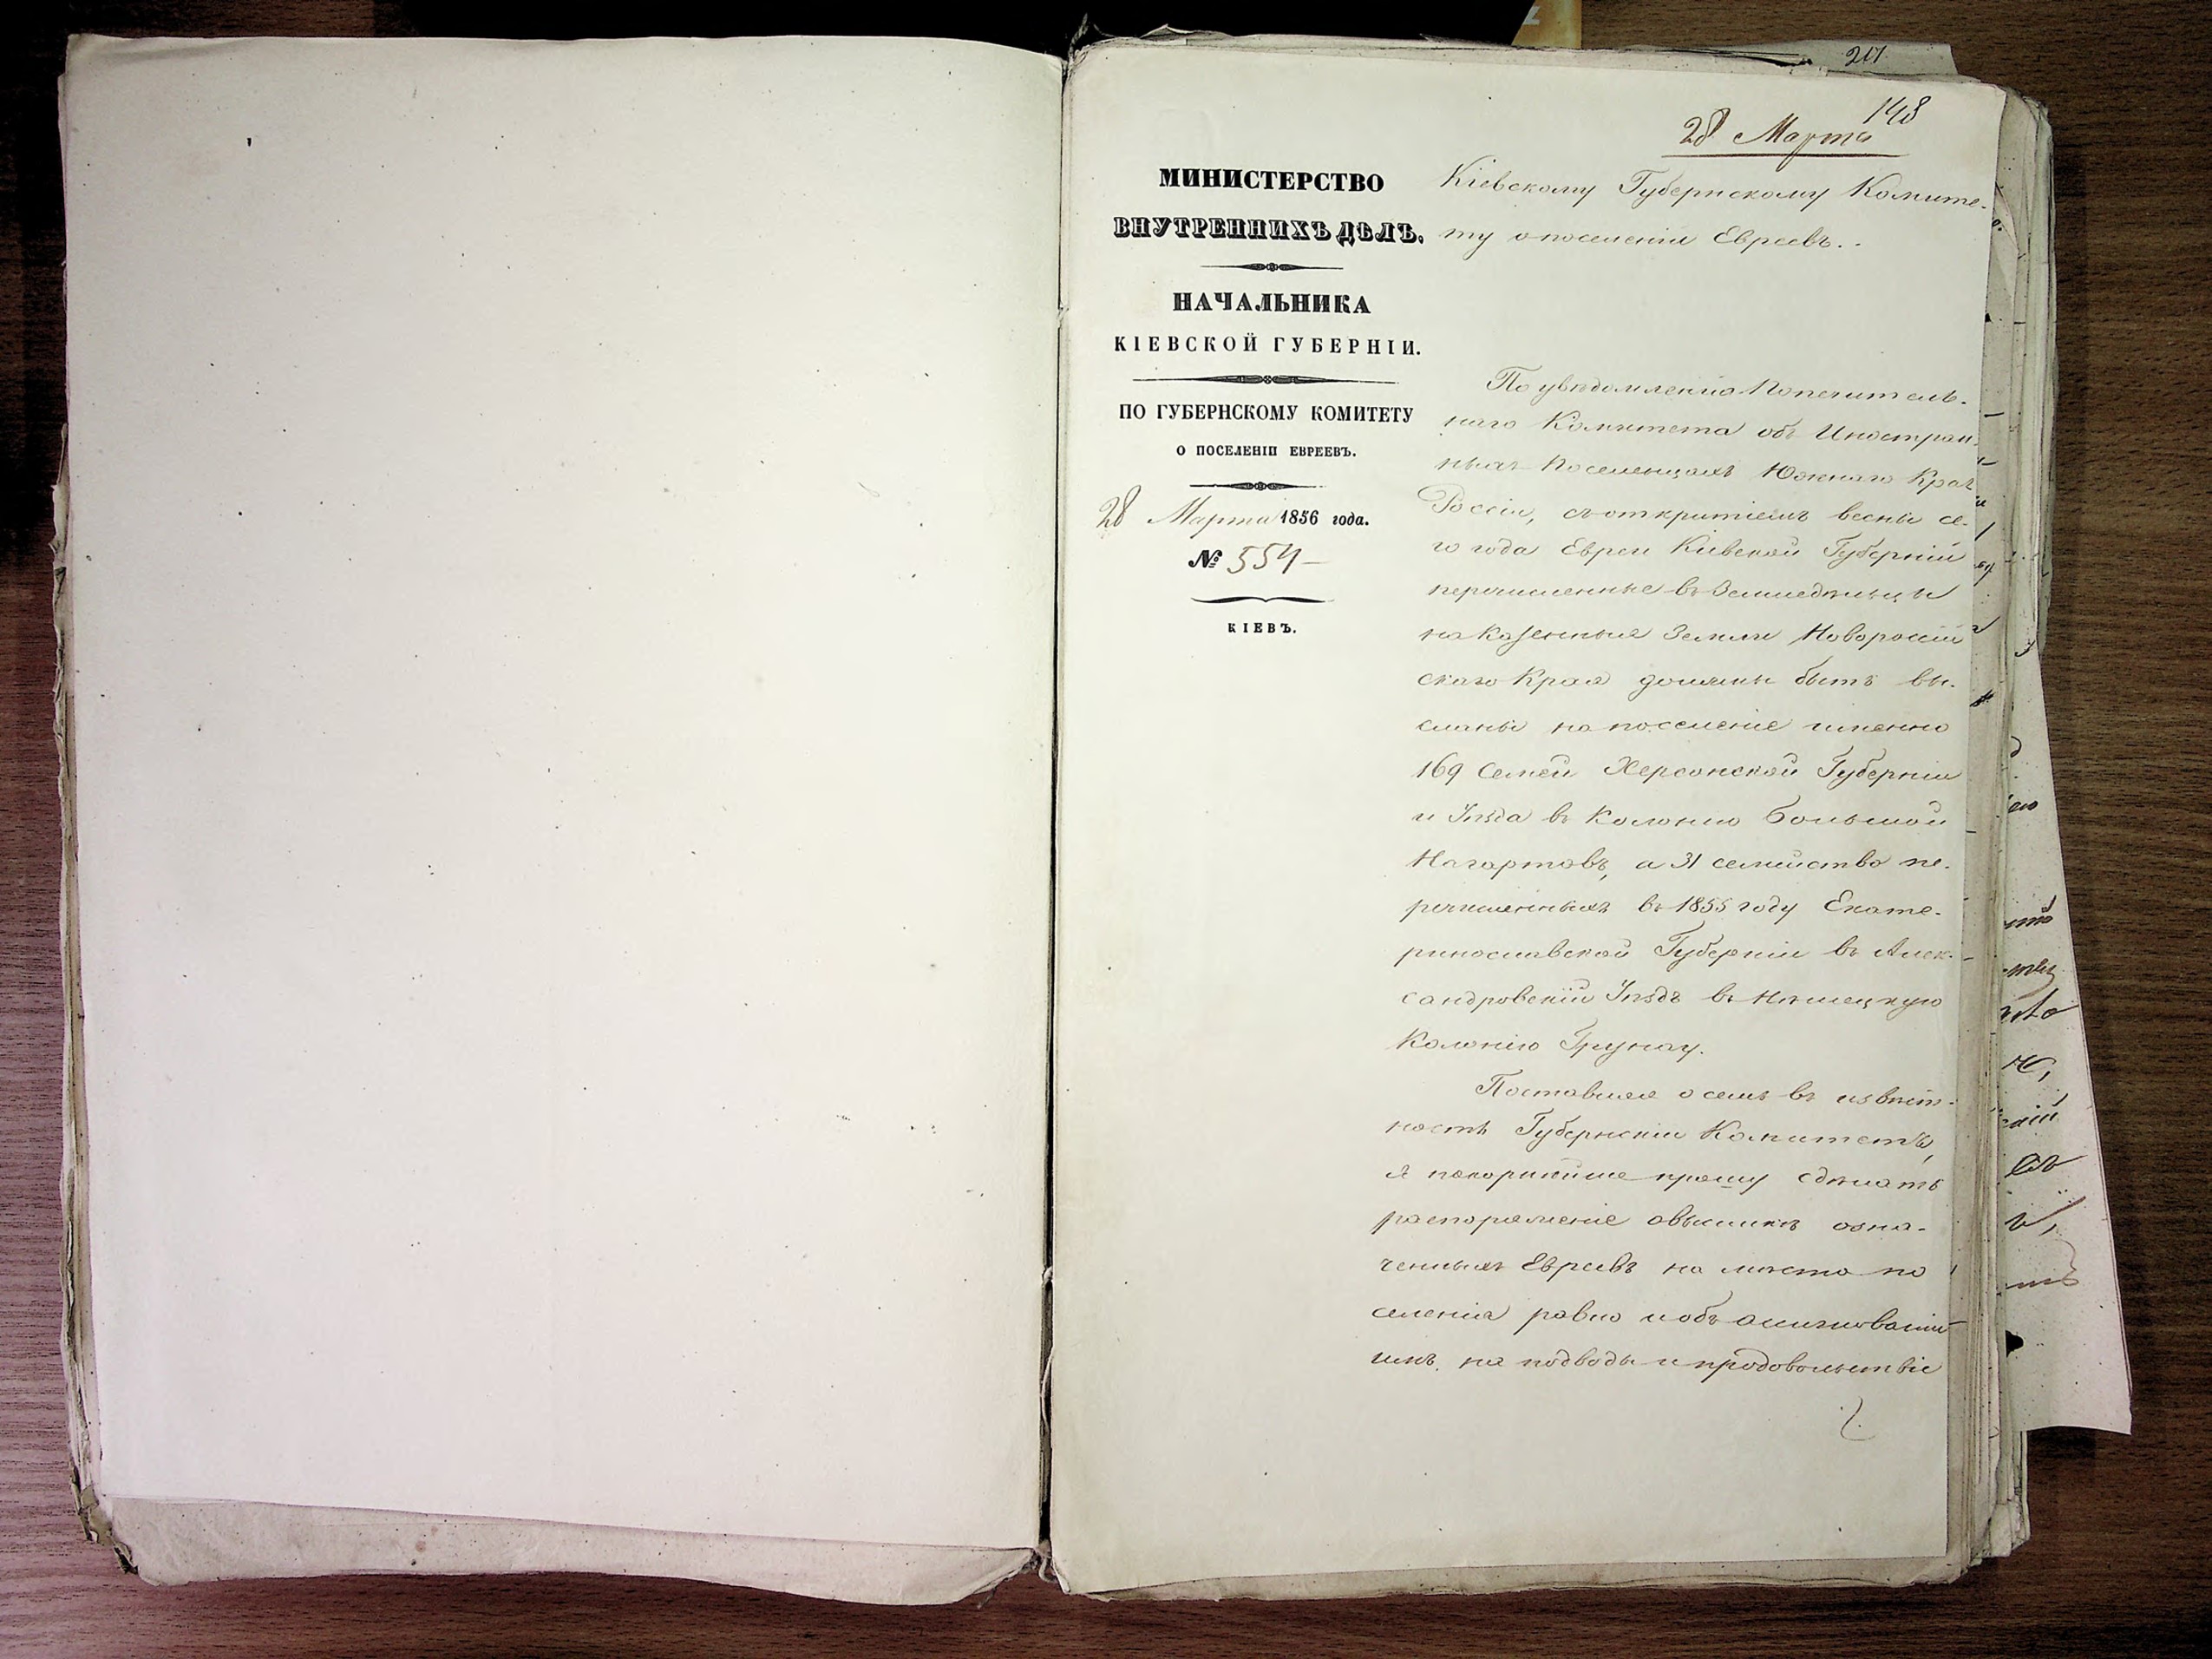 211
148
28 Марта
МИНИСТЕРСТВО
ВНУТРЕННИХЪ ДѢЛЪ.
НАЧАЛЬНИКА
КІЕВСКОЙ ГУБЕРНІИ.
ПО ГУБЕРНСКОМУ КОМИТЕТУ
О ПОСЕЛЕНІИ ЕВРЕЕВЪ.
28 Марта 1856 года.
№ 554
КІЕВЪ.
Кіевскому Губернскому Комите-
ту о поселеніи Евреевъ.
По увѣдомленію Попечитель-
наго Комитета объ Иностран-
ныхъ Поселенцахъ Южнаго Края
Россіи, съ открытіемъ весны се-
го года Евреи Кіевской Губерніи
перечисленные въ Земледѣльцы
на Казенныя Земли Новоросій
скаго Края должны быть вы-
сланы на поселеніе именно
169 Семей Херсонской Губерніи
и Уѣзда въ Колонію Большой
Нагартавъ, а 31 семейство пе-
речисленныхъ въ 1855 году Екате-
ринославской Губерніи въ Алек-
сандровскій Уѣздъ въ Нѣмецкую
Колонію Грунау.
Поставляя о семъ въ извѣст-
ность Губернскій Комитетъ,
я покорнѣйше прошу сдѣлать
распоряженіе о высылкѣ озна-
ченныхъ Евреевъ на мѣсто по
селенія равно и объ асигнованіи
имъ на подводы и продовольствіе